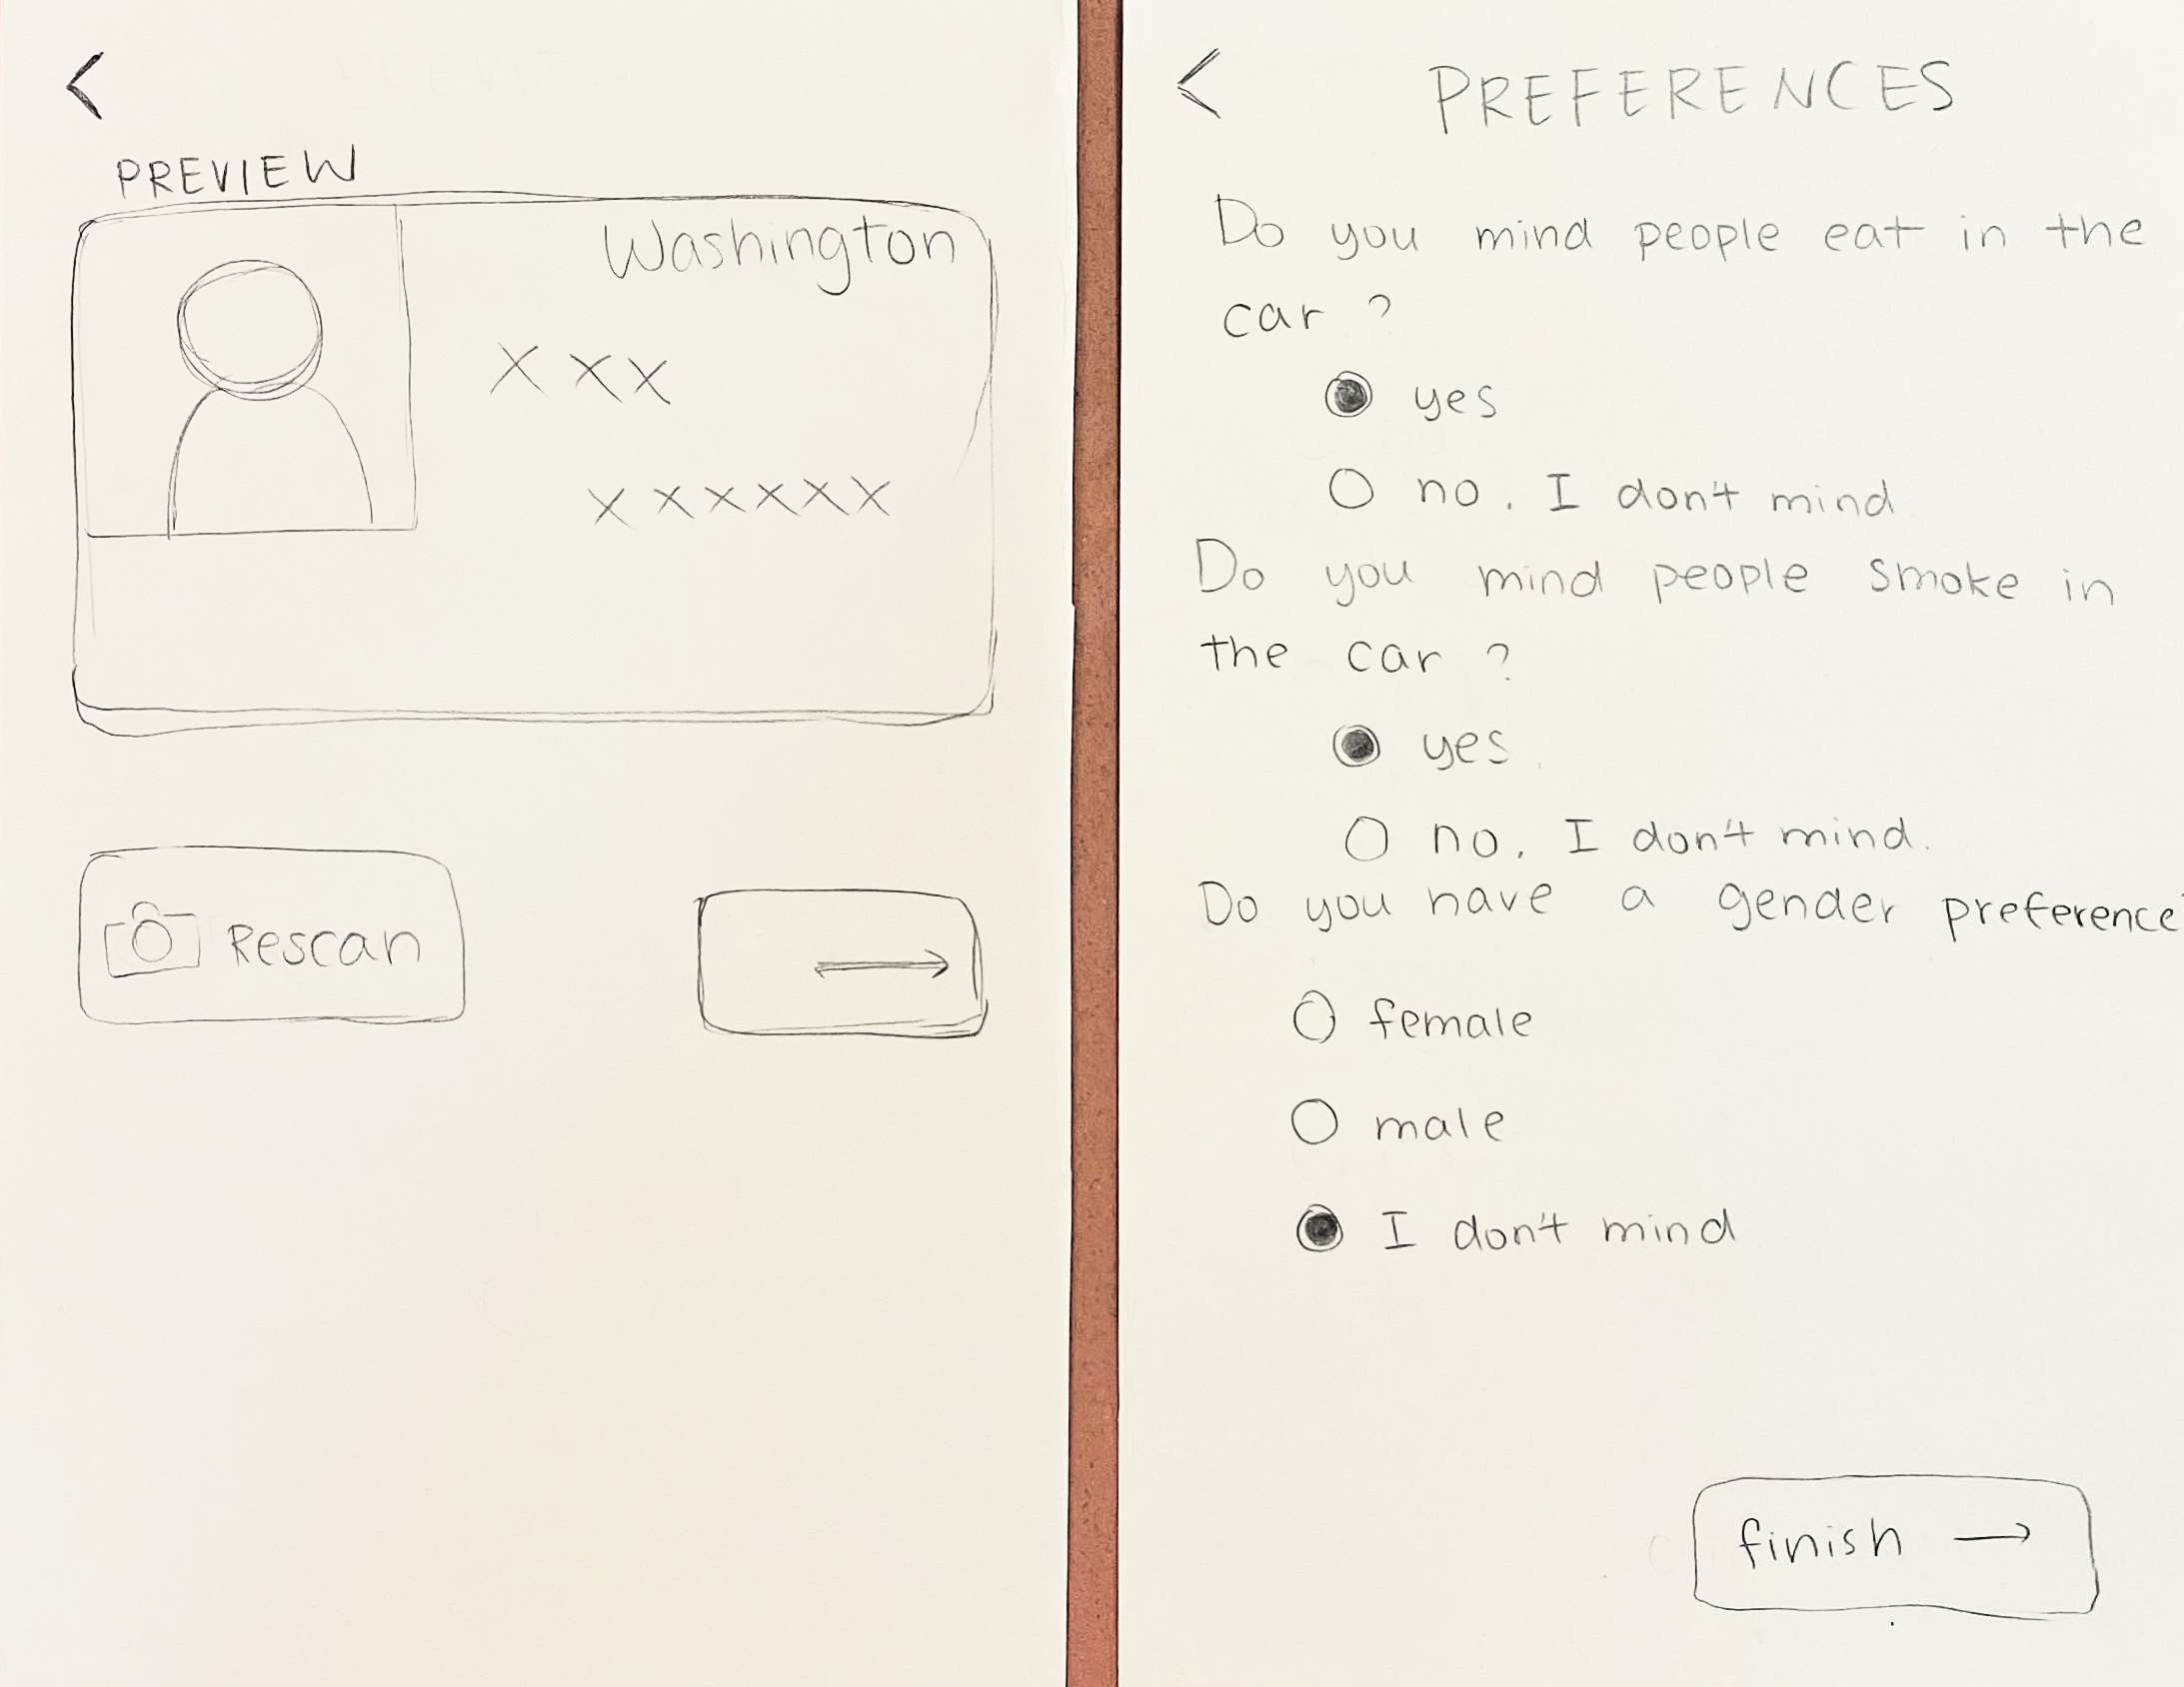 <
PREVIEW
Washington
X X X
X X X X X X
Rescan
<
PREFERENCES
Do you mind people eat in the
car ?
yes
no. I don't mind
Do you mind people smoke in
the car ?
yes
no. I don't mind.
Do you have a gender preference
female
male
I don't mind
finish →